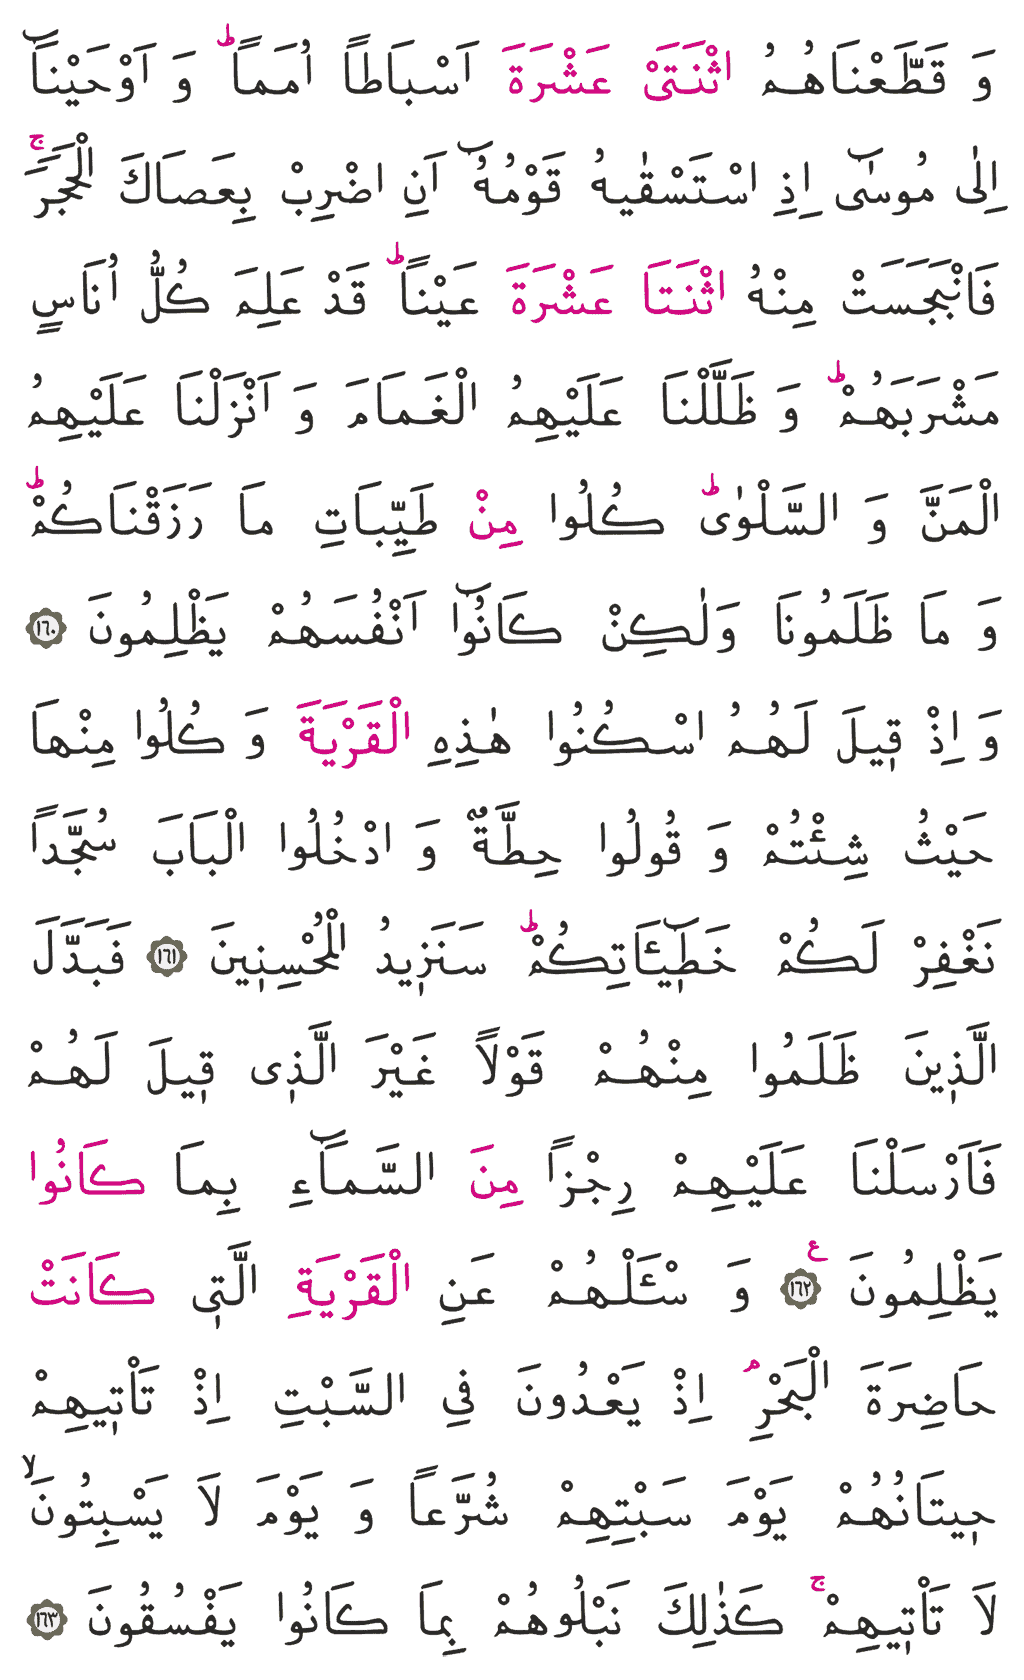 وَ قَطَّعْنَاهُمُ اثْنَتَىْ عَشْرَةَ اَسْبَاطًا اُمَماًۜ وَ اَوْحَيْنَٓا
اِلٰى مُوسٰٓى اِذِ اسْتَسْقٰيهُ قَوْمُهُٓ اَنِ اضْرِبْ بِعَصَاكَ الْحَجَرَۚ
فَانْبَجَسَتْ مِنْهُ اثْنَتَا عَشْرَةَ عَيْناًۜ قَدْ عَلِمَ كُلُّ اُنَاسٍ
مَشْرَبَهُمْۜ وَ ظَلَّلْنَا عَلَيْهِمُ الْغَمَامَ وَ اَنْزَلْنَا عَلَيْهِمُ
الْمَنَّ وَ السَّلْوٰىۜ كُلُوا مِنْ طَيِّبَاتِ مَا رَزَقْنَاكُمْۜ
وَ مَا ظَلَمُونَا وَلٰكِنْ كَانُٓوا اَنْفُسَهُمْ يَظْلِمُونَ ١٦٠
وَ اِذْ قٖيلَ لَهُمُ اسْكُنُوا هٰذِهِ الْقَرْيَةَ وَ كُلُوا مِنْهَا
حَيْثُ شِئْتُمْ وَ قُولُوا حِطَّةٌ وَ ادْخُلُوا الْبَابَ سُجَّداً
نَغْفِرْ لَكُمْ خَطٖٓيـَٔاتِكُمْۜ سَنَزٖيدُ الْمُحْسِنٖينَ ١٦١ فَبَدَّلَ
الَّذٖينَ ظَلَمُوا مِنْهُمْ قَوْلاً غَيْرَ الَّذٖى قٖيلَ لَهُمْ
فَاَرْسَلْنَا عَلَيْهِمْ رِجْزاً مِنَ السَّمَٓاءِ بِمَا كَانُوا
يَظْلِمُونَ ١٦٢ ع وَ سْـَٔلْهُمْ عَنِ الْقَرْيَةِ الَّتٖى كَانَتْ
حَاضِرَةَ الْبَحْرِۢ اِذْ يَعْدُونَ فِى السَّبْتِ اِذْ تَأْتٖيهِمْ
حٖيتَانُهُمْ يَوْمَ سَبْتِهِمْ شُرَّعاً وَ يَوْمَ لَا يَسْبِتُونَۙ
لَا تَأْتٖيهِمْۚ كَذٰلِكَ نَبْلُوهُمْ بِمَا كَانُوا يَفْسُقُونَ ١٦٣